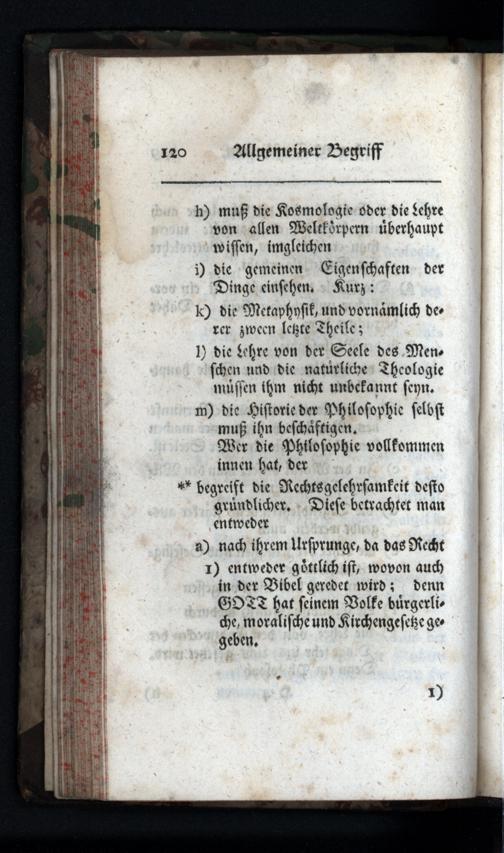 120 Allgemeiner Begriff
h) muß die Kosmologie oder die Lehre
von allen Weltkörpern überhaupt
wissen, imgleichen
i) die gemeinen Eigenschaften der
Dinge einsehen. Kurz:
k) die Metaphysik, und vornämlich de-
rer zween letzte Theile;
l) die Lehre von der Seele des Men-
schen und die natürliche Theologie
müssen ihm nicht unbekannt seyn.
m) die Historie der Philosophie selbst
muß ihn beschäftigen.
Wer die Philosophie vollkommen
innen hat, der
** begreift die Rechtsgelehrsamkeit desto
gründlicher. Diese betrachtet man
entweder
a) nach ihrem Ursprunge, da das Recht
1) entweder göttlich ist, wovon auch
in der Bibel geredet wird; denn
GOTT hat seinem Volke bürgerli-
che, moralische und Kirchengesetze ge-
geben.
1)